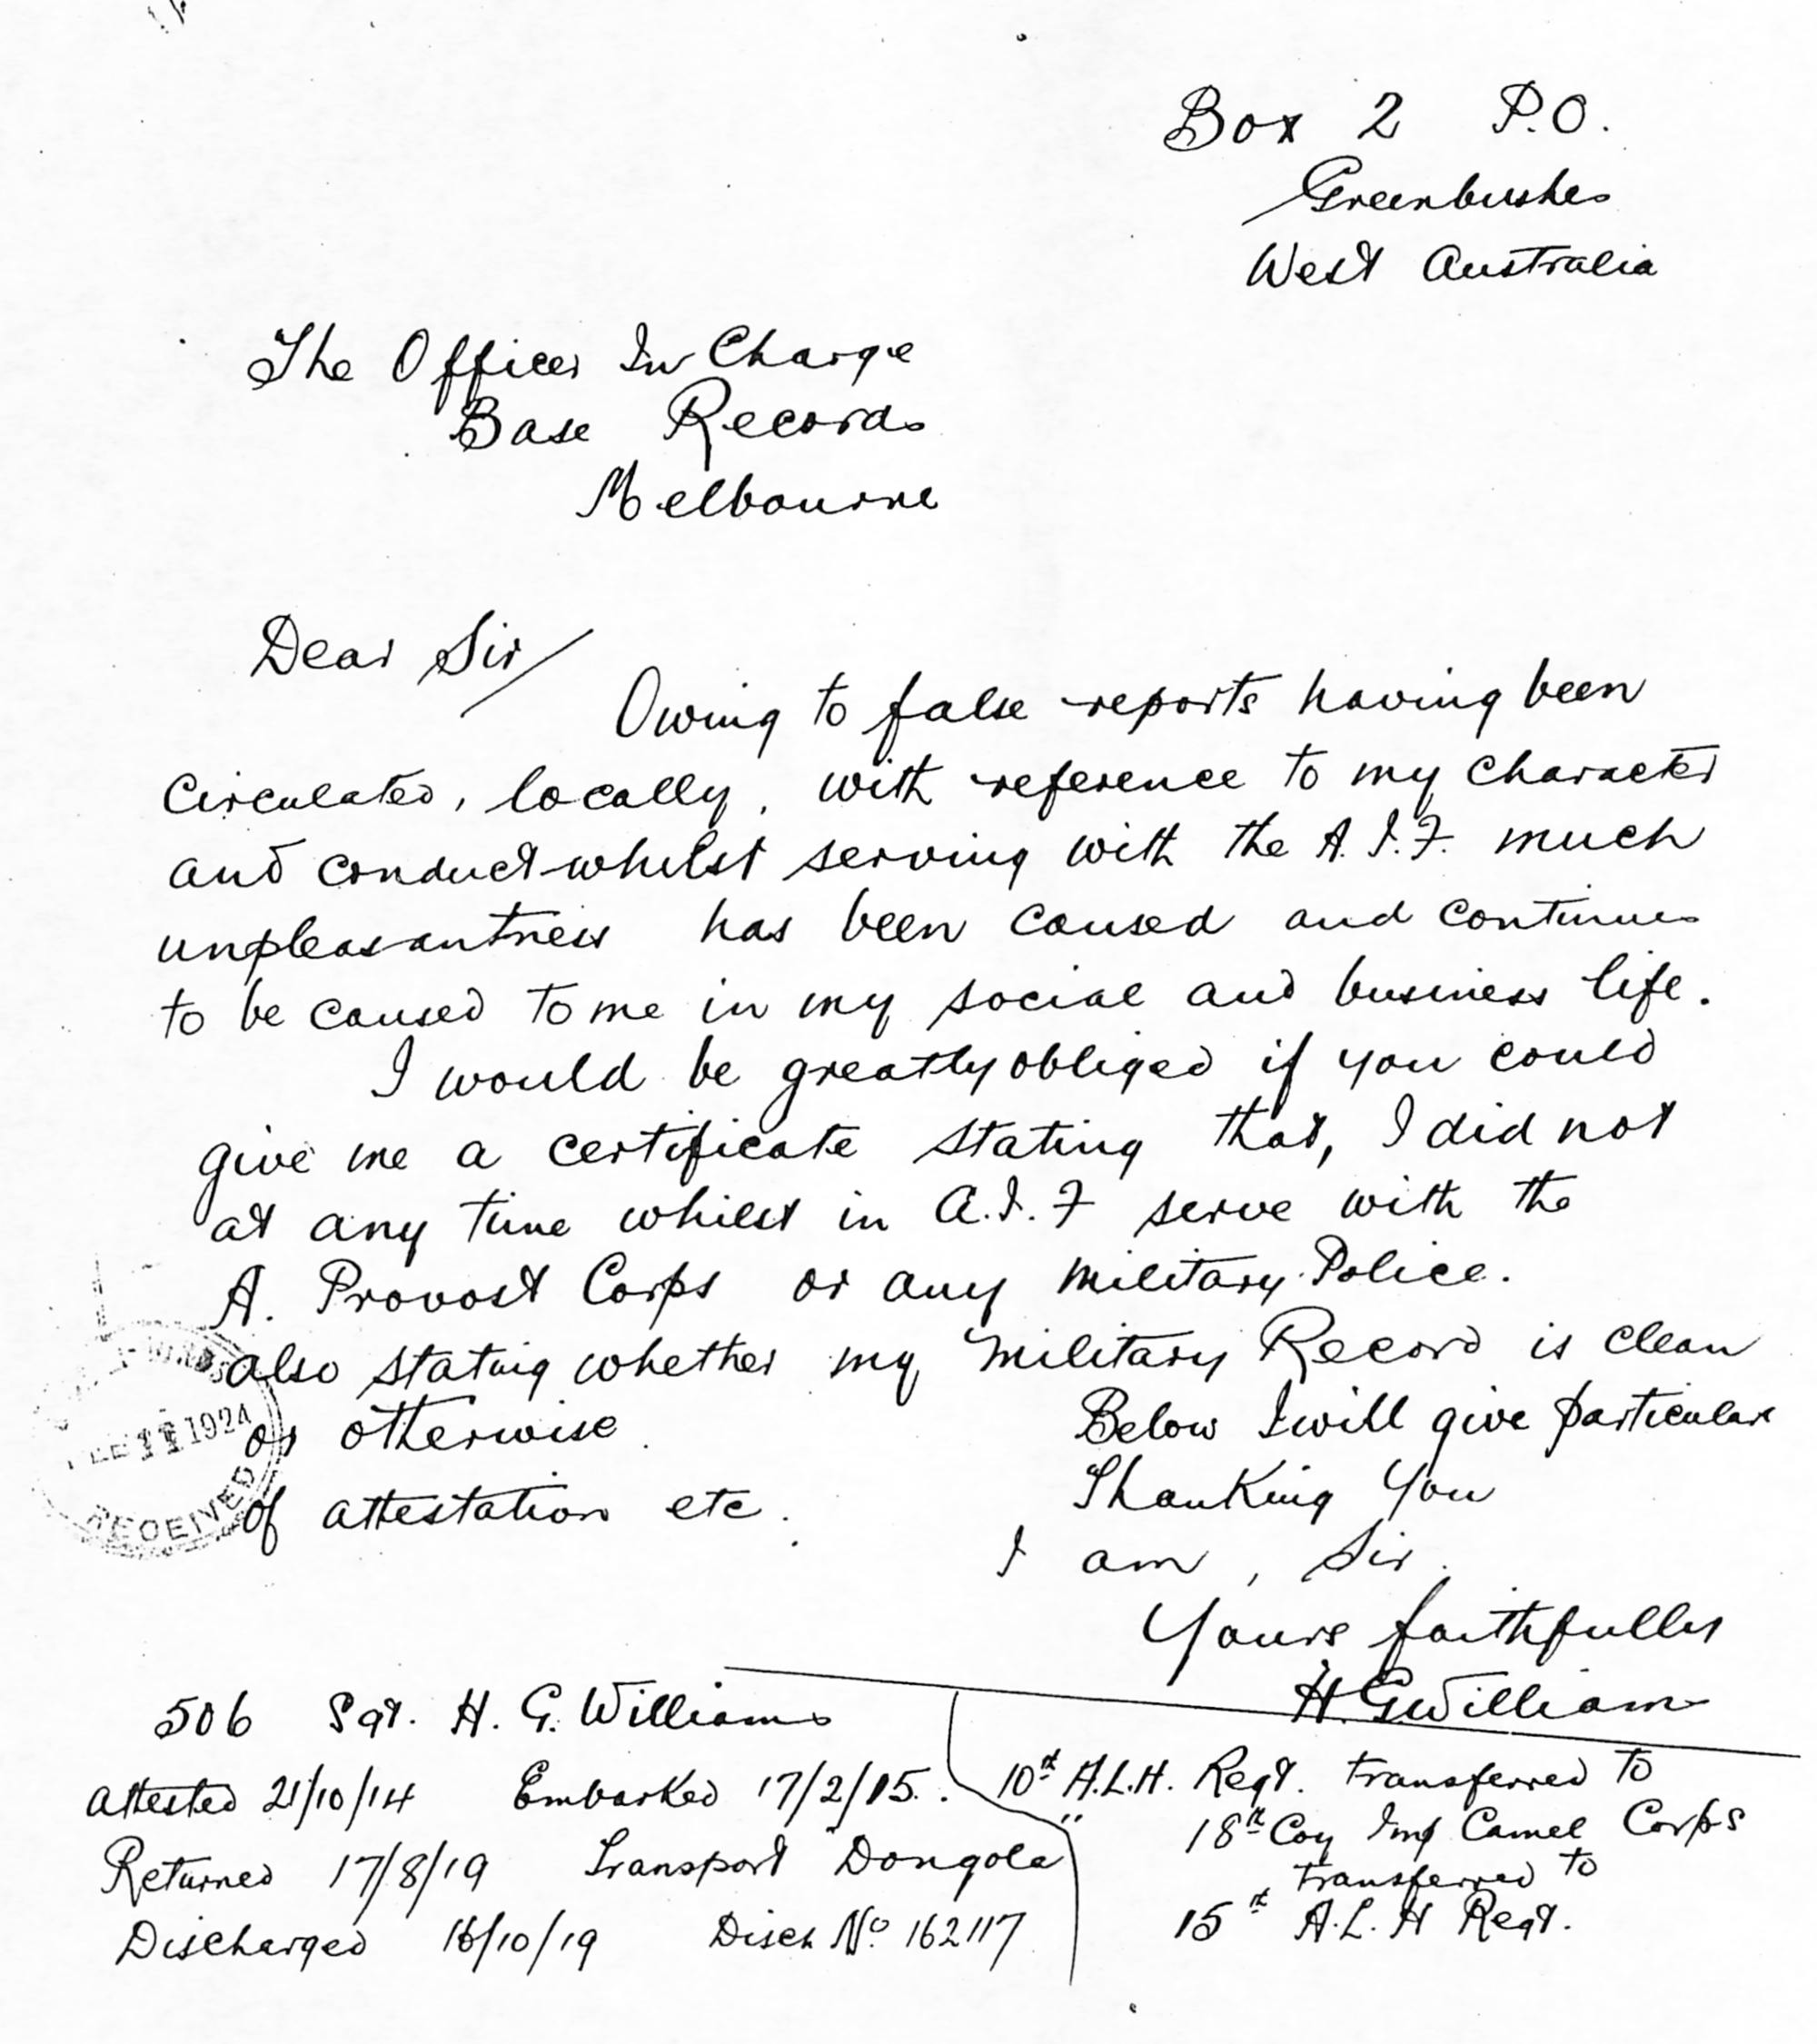 Box 2 P.O.
Greenbushes
West Australia
The Officer In Charge
Base Records
Melbourne
Dear Sir/
Owing to false reports having been
circulated, locally, with reference to my character
and conduct whilst serving with the A.I.F. much
unpleasantness has been caused and continues
to be caused to me in my social and business life.
I would be greatly obliged if you could
give me a certificate stating that, I did not
at any time whilst in A.I.F serve with the
A. Provost Corps or any Military Police.
also stating whether my Military Record is clean
or otherwise. Below I will give particulars
of attestation etc.
Thanking You
I am, Sir.
Yours faithfully
H.G.Williams
506 Sgt. H. G. Williams
Attested 21/10/14 Embarked 17/2/15.
Returned 17/8/19 Transport "Dongola"
Discharged 16/10/19 Disch No 162117
10th A.L.H. Regt. transferred to
18th Coy Imp Camel Corps
transferred to
15th A.L.H Regt.
1924
RECEIVED